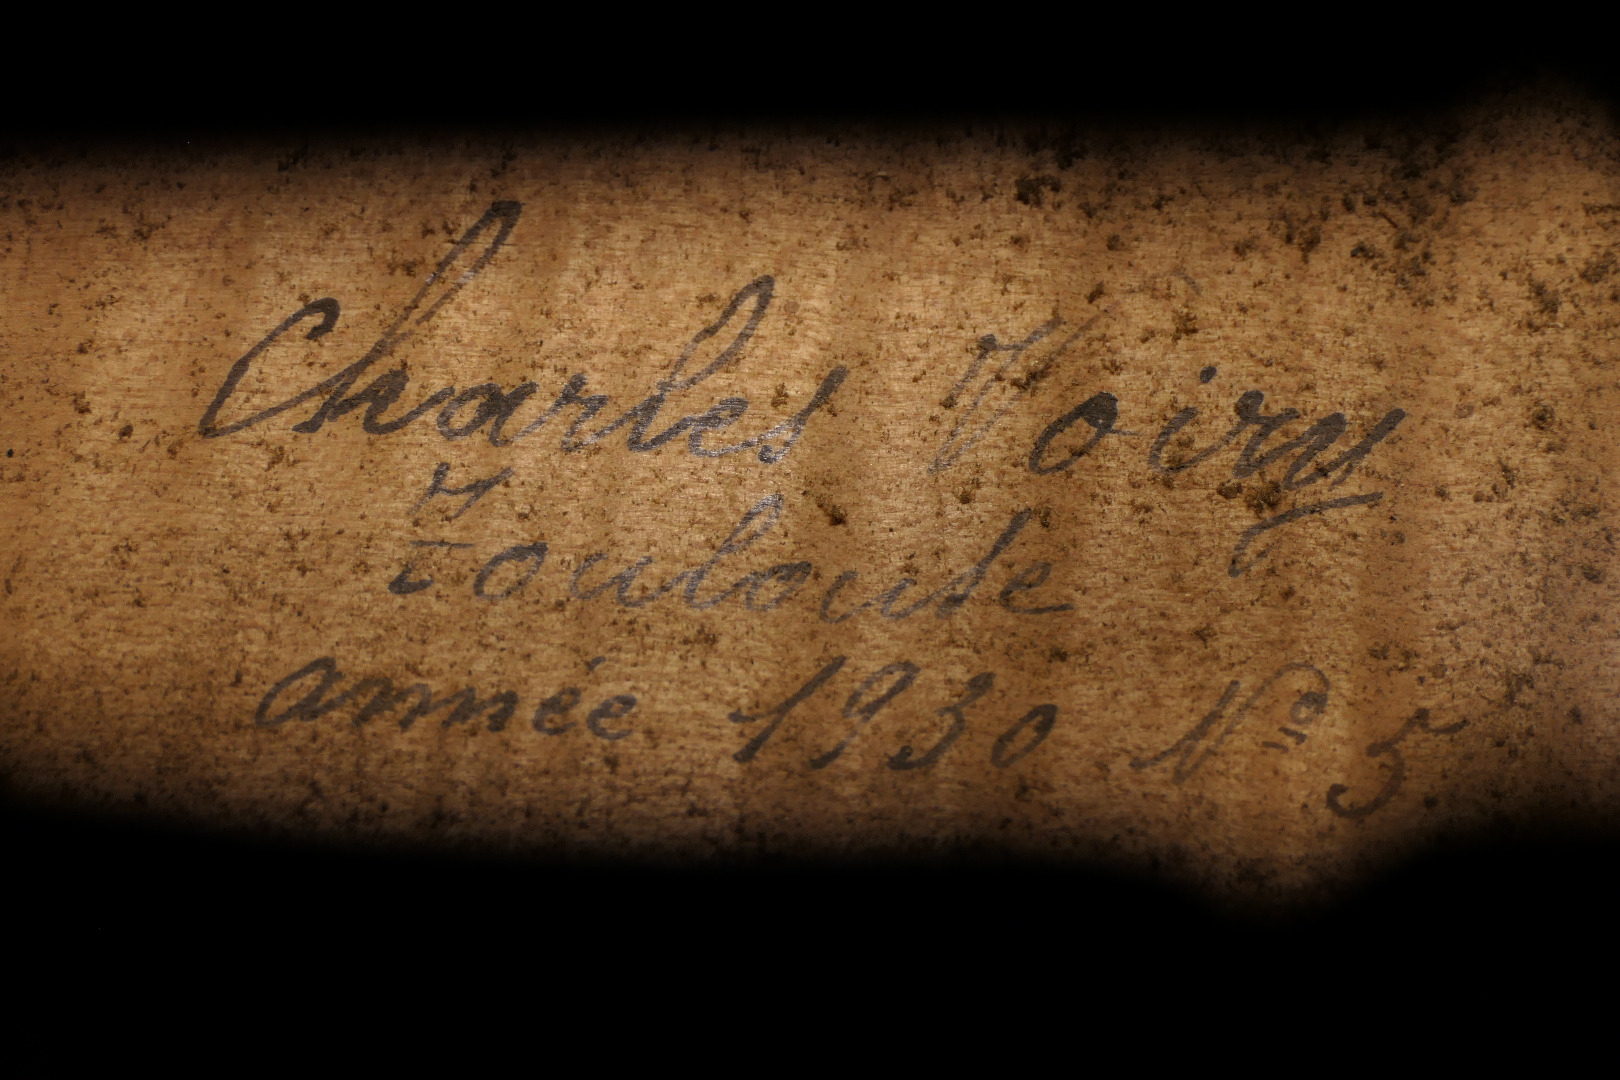 Charles Voiry
Toulouse
année 1930 Nº 5